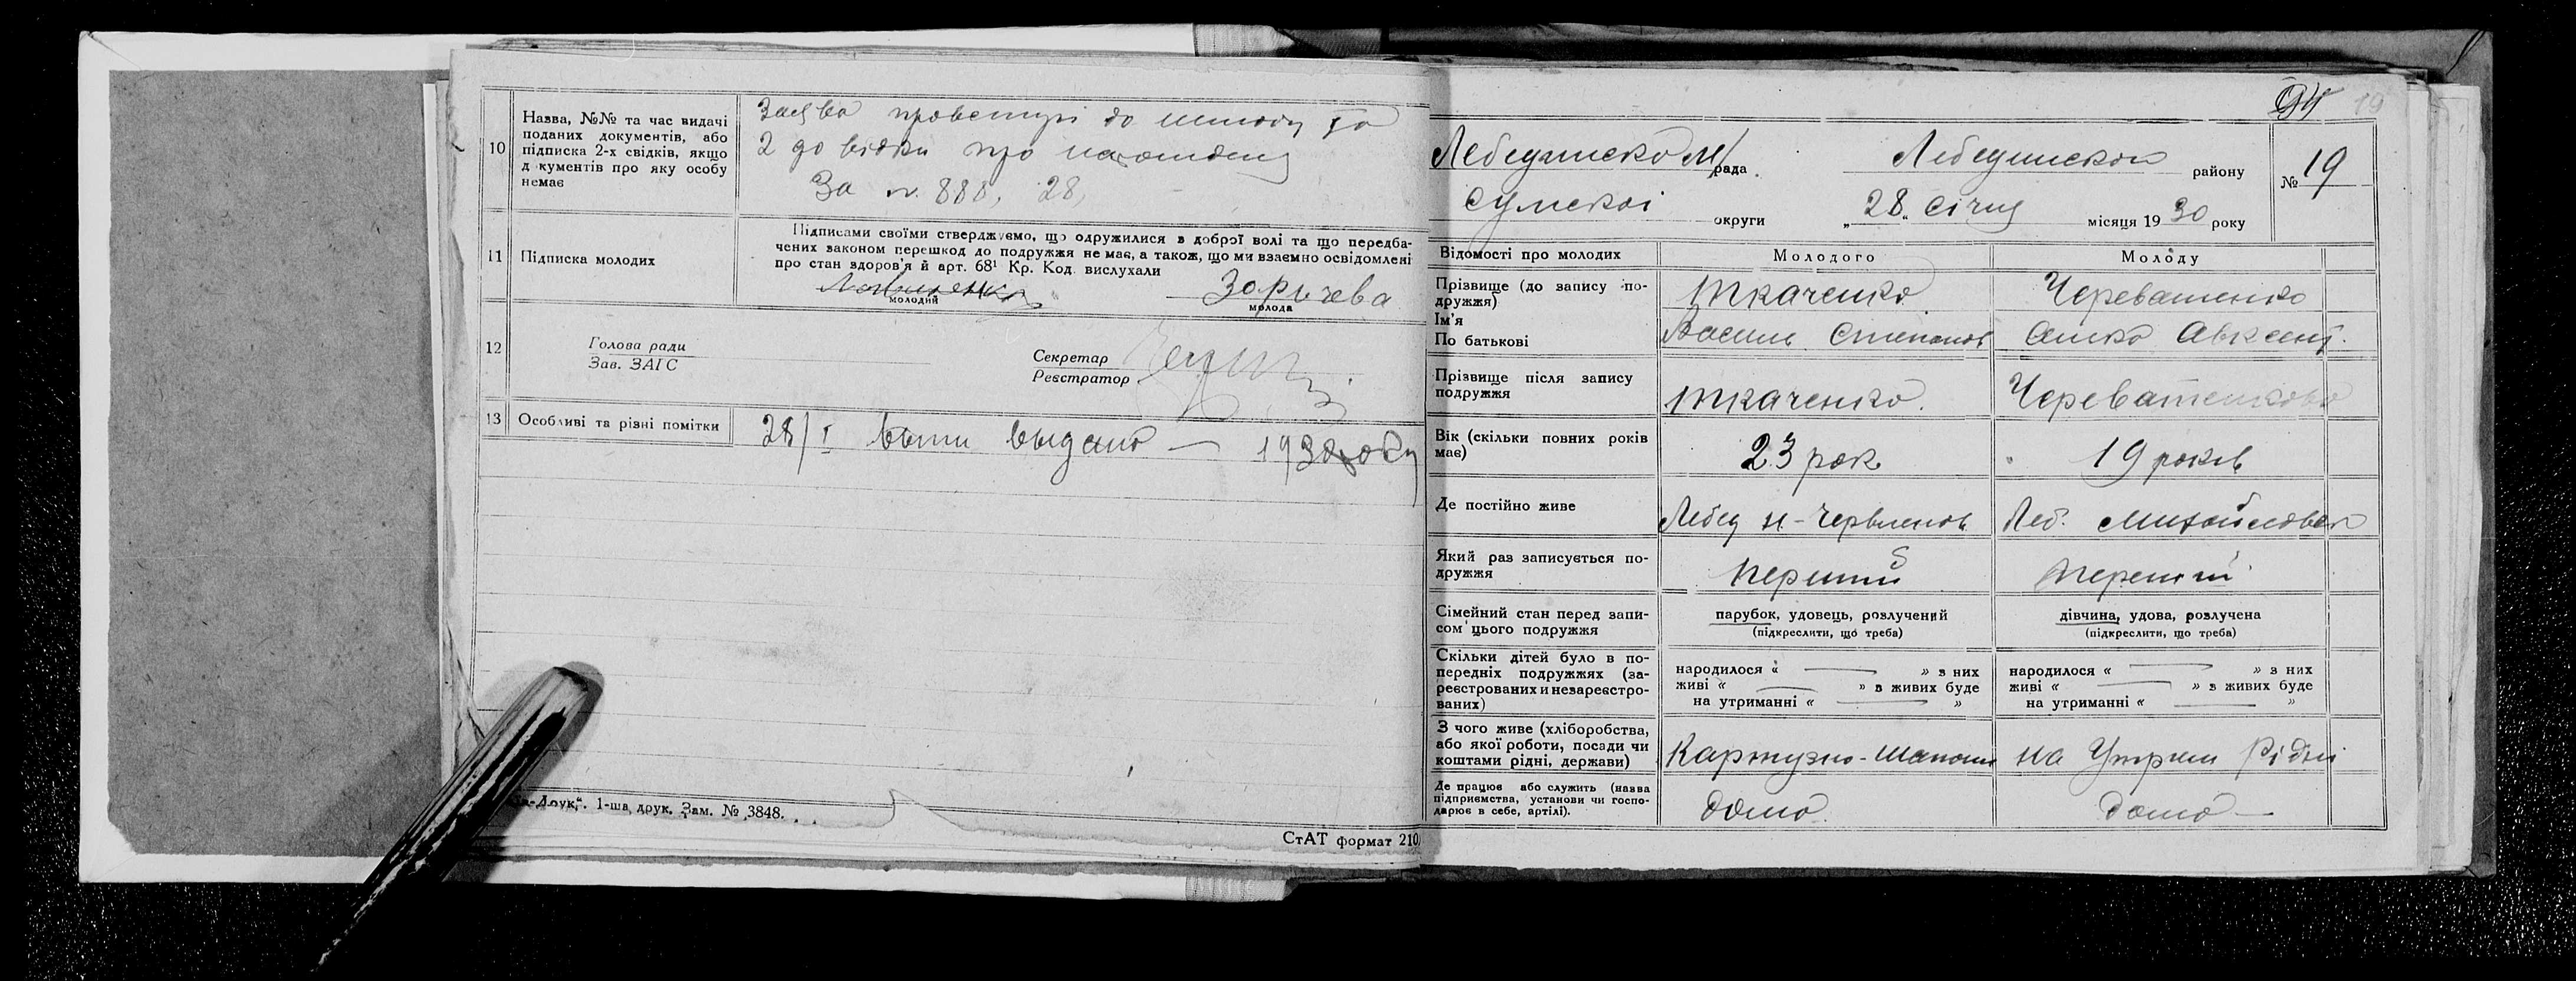 10
Назва, №№ та час видачі
поданих документів, або
підписка 2-х свідків, якщо
д кументів про яку особу
немає
Заява про вступ до шлюбу та
2 довідки про
За № 888, 28,
11
Підписка молодих
Підписами своїми стверджуємо, що одружилися з доброї волі та що передба-
чених законом перешкод до подружжя не має, а також, що ми взаємно освідомлені
про стан здоров'я й арт. 68¹ Кр. Код. вислухали
молодий
Зорычева
молода
12
Голова ради
Зав. ЗАГС
Секретар
Реєстратор
13
Особливі та різні помітки
28/I выдано — 1930 року
-Друк". 1-ша друк. Зам. № 3848.
СтАТ формат 210
19
Лебединсько М/рада. Лебединськ району
№ 19
Сумської округи „28" січня місяця 1930 року
Відомості про молодих
Молодого
Молоду
Прізвище (до запису по-
дружжя)
Ткаченко
Череватенко
Ім'я
По батькові
Василь Степанов
Авксент.
Прізвище після запису
подружжя
Ткаченко.
Череватенкова
Вік (скільки повних років
має)
23 рок
19 років
Де постійно живе
Лебед н-Червленов
Леб. Михайловск
Який раз записується по-
дружжя
перший
перший
Сімейний стан перед запи-
сом цього подружжя
парубок, удовець, розлучений
(підкреслити, що треба)
дівчина, удова, розлучена
(підкреслити, що треба)
Скільки дітей було в по-
передніх подружжях (за-
реєстрованих и незареєстро-
ваних)
народилося « — » з них
живі « — » з живих буде
на утриманні « — »
народилося « — » з них
живі « — » з живих буде
на утриманні « — »
З чого живе (хліборобства,
або якої роботи, посади чи
коштами рідні, держави)
Картузно-Шапошн
на Утрим Рідні
Де працює або служить (назва
підприємства, установи чи госпо-
дарює в себе, артілі).
дома.
дома —